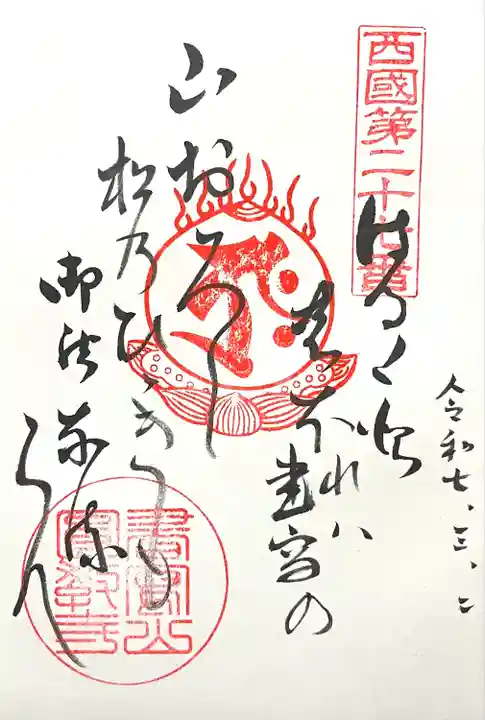 西國第二十七番
令和七、三、二
はる〱と
れハ書写の
山おろし
松乃ひゞきも
御法奈流
らん
書寫山
圓教寺